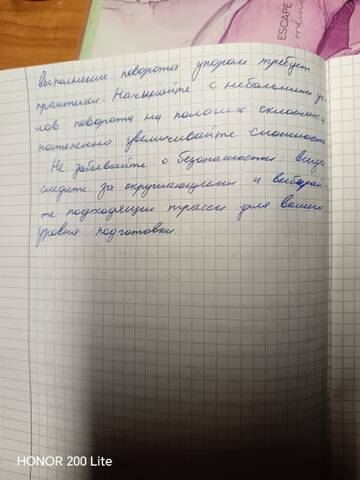 ESCAPE
выполнение поворота упором требует
практики. Начинайте с небольших уг-
лов поворота на пологих склонах и
постепенно увеличивайте сложность
Не забывайте о безопасности: всегда
следите за окружающими и выбирай-
те подходящие трассы для вашего
уровня подготовки
HONOR 200 Lite